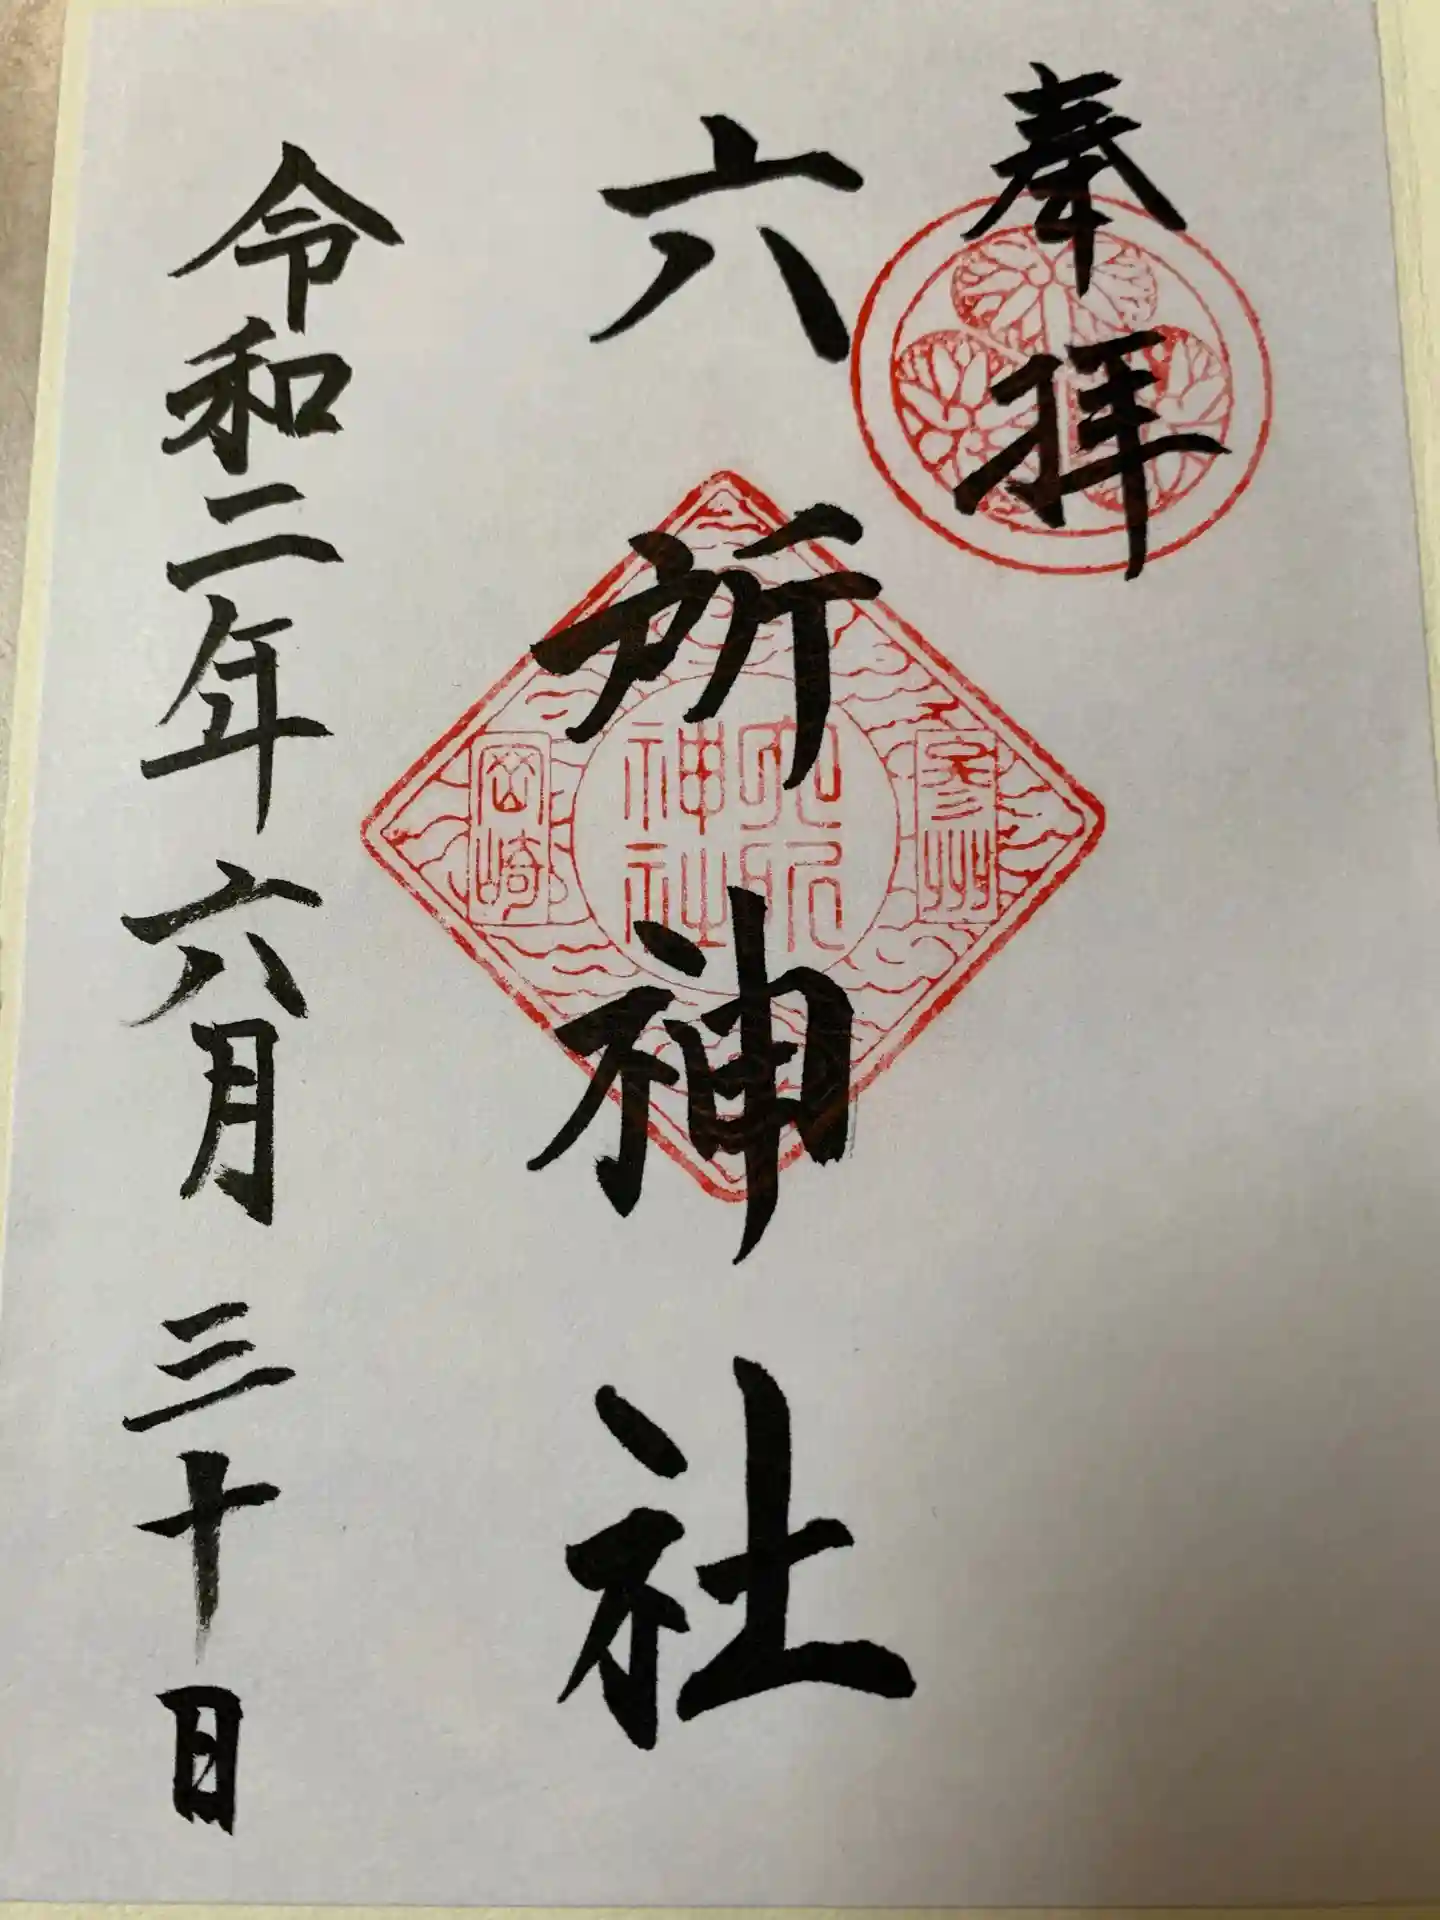 奉拝
六所神社
令和二年六月三十日
参州
六所
神社
岡崎